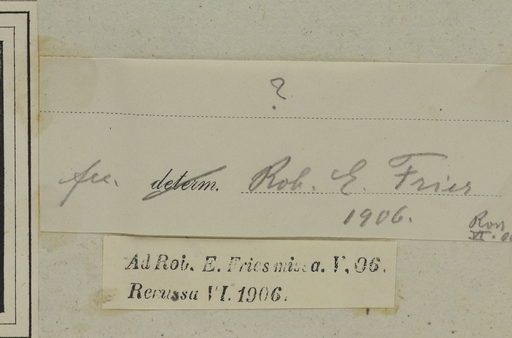 ?
determ. Rob. E. Fries
1906.
Ad Rob. E. Fries missa. V, 06.
Recussa VI. 1906.